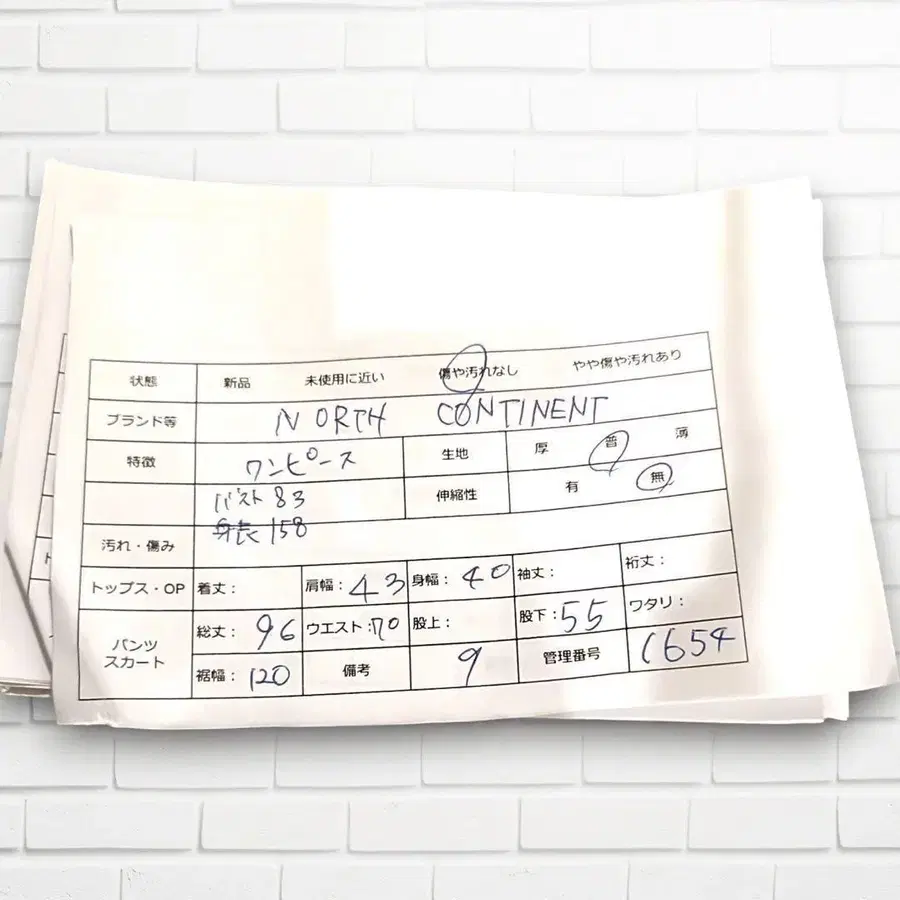 状態 新品 未使用に近い 傷や汚れなし やや傷や汚れあり
ブランド等 NORTH CONTINENT
特徴 ワンピース 生地 厚 普 薄
バスト 83 伸縮性 有 無
身長 158
汚れ・傷み
トップス・OP 着丈: 肩幅: 43 身幅: 40 袖丈: 裄丈:
パンツ スカート 総丈: 96 ウエスト: 70 股上: 股下: 55 ワタリ:
裾幅: 120 備考 9 管理番号 1654